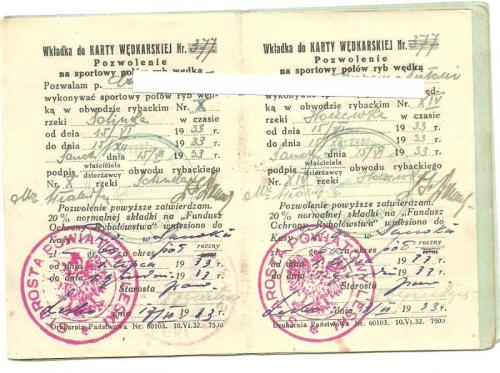 Wkładka do KARTY WĘDKARSKIEJ Nr. 377
Pozwolenie
na sportowy połów ryb wędką
Pozwalam p.
wykonywać sportowy połów ryb węd-
ką w obwodzie rybackim Nr. X
rzeki Solinka w czasie
od dnia 15/VI 1933 r.
do dnia 15/XII 1933 r.
Sanok dnia 15/ 1933 r.
właściciela
podpis dzierżawcy obwodu rybackiego
Nr. X rzeki
Pozwolenie powyższe zatwierdzam.
20% normalnej składki na „Fundusz
Ochrony Rybołówstwa" wniesiono do
Kasy w Sanoku
zł. gr. za okres pół roczny
od dnia 1933 r.
do dnia 1933 r.
Starosta
Lesko dnia 1933 r.
Drukarnia Państwowa Nr 60103. 10.VI.32. 7500
STAROSTA POWIATOWY
Wkładka do KARTY WĘDKARSKIEJ Nr. 377
Pozwolenie
na sportowy połów ryb wędką
wykonywać sportowy połów ryb węd-
ką w obwodzie rybackim Nr. XIV
rzeki Hoczewka w czasie
od dnia 15/VI 1933 r.
do dnia 15/XII 1933 r.
Sanok dnia 15/ 1933 r.
właściciela
podpis dzierżawcy obwodu rybackiego
Nr. XIV rzeki Hoczewka
Pozwolenie powyższe zatwierdzam.
20% normalnej składki na „Fundusz
Ochrony Rybołówstwa" wniesiono do
Kasy w Sanoku
zł. gr. za okres pół roczny
od dnia 1933 r.
do dnia 1933 r.
Starosta
Lesko dnia 1933 r.
Drukarnia Państwowa Nr 60103. 10.VI.32. 7500